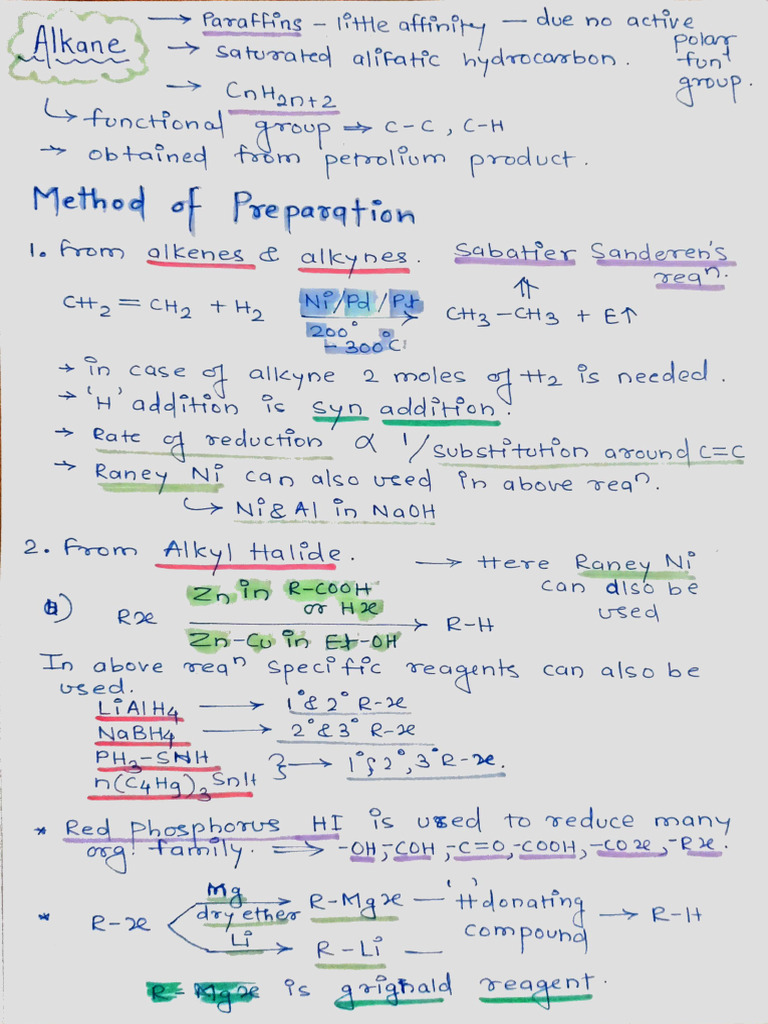 Alkane → Paraffins – little affinity – due no active polar funⁿ group.
→ saturated alifatic hydrocarbon.
→ CnH2n+2
↳ functional group ⇒ C-C, C-H
→ obtained from petrolium product.
Method of Preparation
1. From alkenes & alkynes. Sabatier Sanderen's reaⁿ.
⇑
CH2=CH2 + H2 Ni/Pd/Pt 200° - 300°C → CH3-CH3 + E↑
→ in case of alkyne 2 moles of H2 is needed.
→ 'H' addition is syn addition.
→ Rate of reduction ∝ 1/substitution around C=C
→ Raney Ni can also used in above reaⁿ.
↳ Ni & Al in NaOH
2. From Alkyl Halide. → Here Raney Ni can also be used
a) Rx Zn in R-COOH or Hx → R-H
Zn-Cu in Et-OH
In above reaⁿ specific reagents can also be
used.
LiAlH4 → 1° & 2° R-x
NaBH4 → 2° & 3° R-x
PH3-SNH } → 1°, 2°, 3° R-x.
n(C4H9)3 SnH
* Red phosphorus HI is used to reduce many
org. family. ⇒ -OH, -COH, -C=O, -COOH, -COx, -Rx.
* R-x Mg dry ether → R-Mgx — 'H' donating compound → R-H
Li → R-Li —
R-Mgx is grignald reagent.